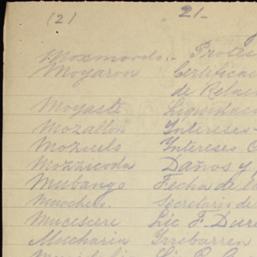 (2) 21-
Moxmordo.. Protes
Moyaron Certifica
de Relac
Moyaste Liquidac
Mozallon Intereses
Mozuelo Intereses C
Mozzicoda Daños y
Mubango Fecha de l
Muochel Secretario de
Mucescere Lic. J. Dure
Mucharia Irribarren